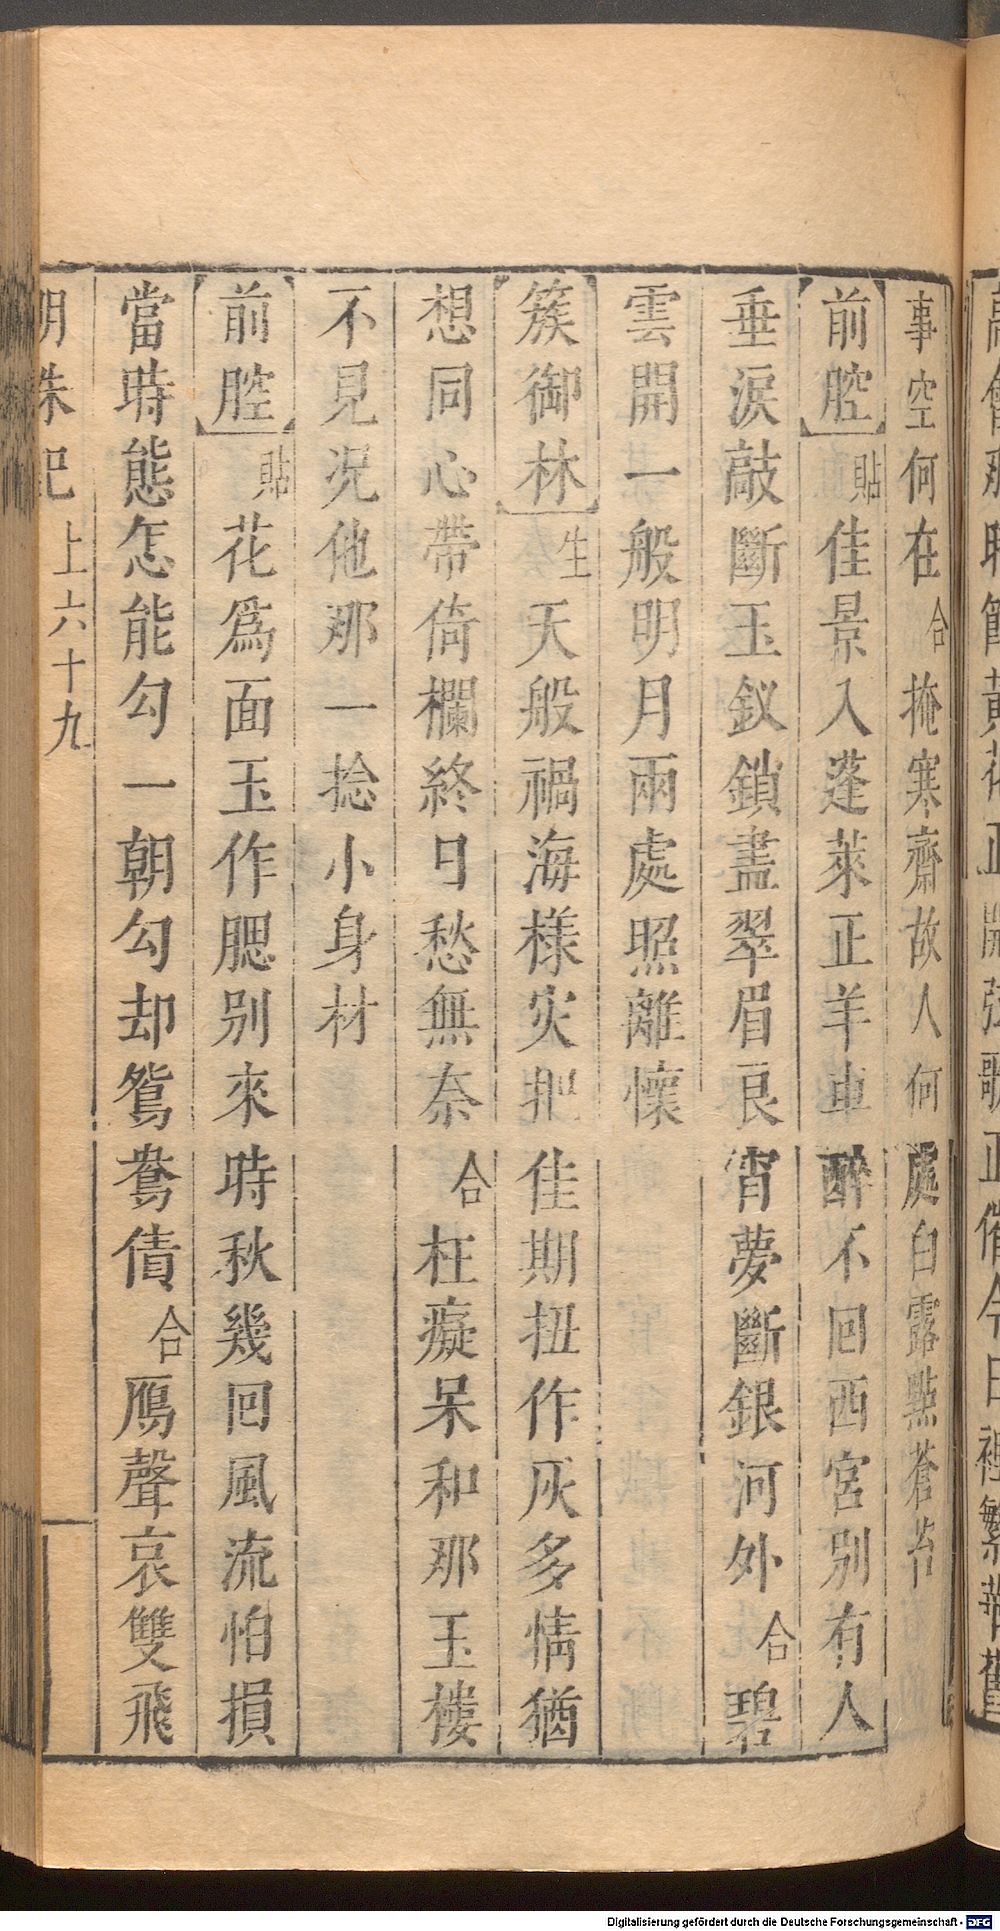 事空何在合掩寒齋故人何處白露點蒼苔
前腔貼佳景入蓬萊正羊車醉不回西宮別有人
垂淚敲斷玉釵鎖盡翠眉良宵夢斷銀河外合碧
雲開一般明月兩處照離懷
簇御林生天般禍海樣灾把佳期扭作灰多情猶
想同心帶倚欄終日愁無奈合枉癡呆和那玉樓
不見况他那一捻小身材
前腔貼花爲面玉作腮別來時秋幾回風流怕損
當時態怎能勾一朝勾却鴛鴦債合鴈聲哀雙飛
明珠記上六十九
Digitalisierung gefördert durch die Deutsche Forschungsgemeinschaft - DFG